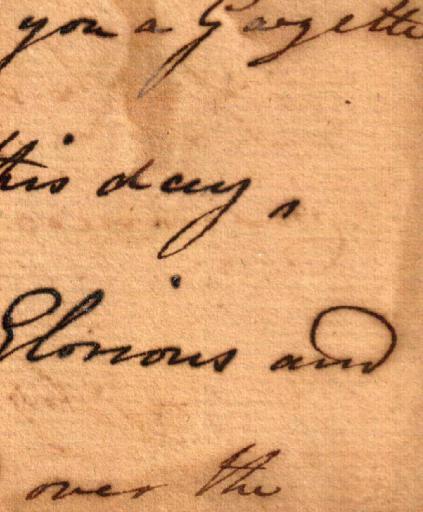 you a Gazette
this day,
Glorious and
over the